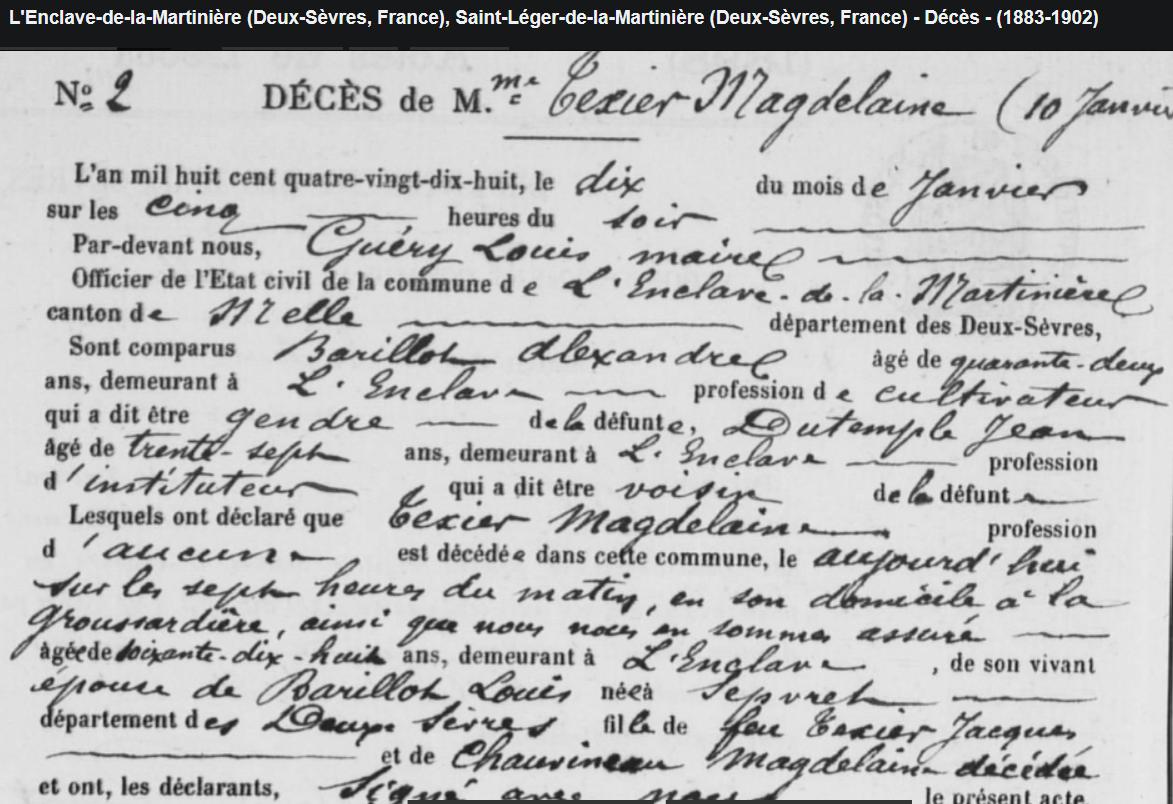 L'Enclave-de-la-Martinière (Deux-Sèvres, France), Saint-Léger-de-la-Martinière (Deux-Sèvres, France) - Décès - (1883-1902)
No 2 DÉCÈS de M.me Texier Magdelaine (10 Janvie
L'an mil huit cent quatre-vingt-dix-huit, le dix du mois de Janvier
sur les cinq heures du soir
Par-devant nous, Guéry Louis maire
Officier de l'Etat civil de la commune de L'Enclave-de-la-Martinière
canton de Melle département des Deux-Sèvres,
Sont comparus Barillot Alexandre âgé de quarante-deux
ans, demeurant à L'Enclave profession de cultivateur
qui a dit être gendre de la défunte, Dutemple Jean
âgé de trente-sept ans, demeurant à L'Enclave profession
d'instituteur qui a dit être voisin de la défunte
Lesquels ont déclaré que Texier Magdelaine profession
d'aucune est décédée dans cette commune, le aujourd'hui
sur les sept heures du matin, en son domicile à la
Groussardière, ainsi que nous nous en sommes assuré
âgée de soixante-dix-huit ans, demeurant à L'Enclave, de son vivant
épouse de Barillot Louis née à Sepvret
département des Deux-Sèvres fille de feu Texier Jacques
et de Chauvineau Magdelaine décédée
et ont, les déclarants, signé avec nous le présent acte